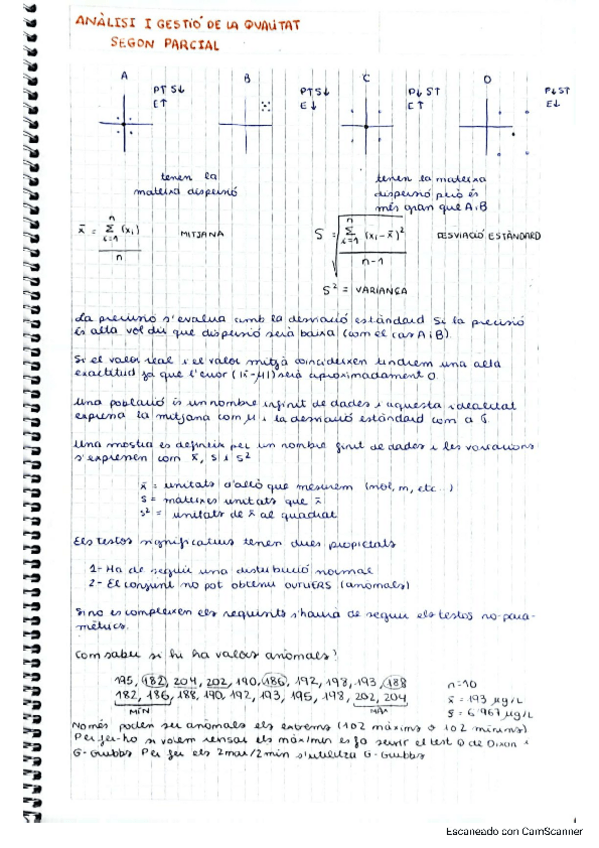 ANÀLISI I GESTIÓ DE LA QUALITAT
SEGON PARCIAL
A B C D
P↑ S↓ P↑ S↓ P↓ S↑ P↓ S↑
E↑ E↓ E↑ E↓
tenen la
mateixa dispersió
tenen la mateixa
dispersió però és
més gran que A i B
x̄ = Σ (xi) / n MITJANA
n
i=1
S = √ Σ (xi - x̄)² / n-1 DESVIACIÓ ESTÀNDARD
n
i=1
S² = VARIANÇA
La precisió s'evalua amb la desviació estàndard. Si la precisió
és alta vol dir que dispersió serà baixa (com el cas A i B).
Si el valor real i el valor mitjà coincideixen tindrem una alta
exactitud ja que l'error (|x̄-μ|) serà aproximadament 0.
Una població és un nombre infinit de dades i aquesta idealitat
expressa la mitjana com μ i la desviació estàndard com a σ.
Una mostra es defineix per un nombre finit de dades i les variacions
s'expressen com x̄, s i s²
x̄ = unitats d'allò que mesurem (mol, m, etc...)
S = mateixes unitats que x̄
s² = unitats de x̄ al quadrat
Els testos significatius tenen dues propietats
1- Ha de seguir una distribució normal
2- El conjunt no pot obtenir OUTLIERS (anòmals)
Si no es compleixen els requisits s'haurà de seguir els testos no-para-
mètrics.
Com saber si hi ha valors anòmals?
195, 182, 204, 202, 190, 186, 192, 198, 193, 188 n=10
182, 186, 188, 190, 192, 193, 195, 198, 202, 204 x̄ = 193 μg/L
MÍN MÀX S = 6'967 μg/L
Només poden ser anòmals els extrems (1 o 2 màxims o 1 o 2 mínims)
Per fer-ho si volem testar els màx/mín es fa servir el test Q de Dixon i
G-Grubbs. Per fer els 2max/2min s'utilitza G-Grubbs
Escaneado con CamScanner